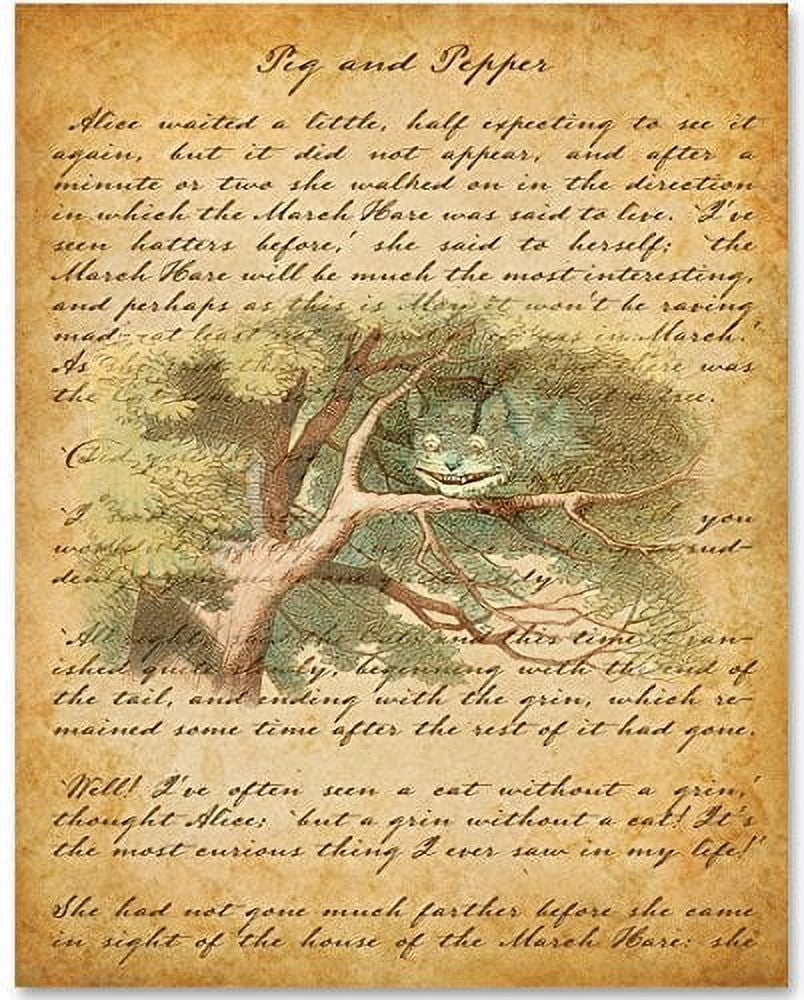 Pig and Pepper
Alice waited a little, half expecting to see it
again, but it did not appear, and after a
minute or two she walked on in the direction
in which the March Hare was said to live. 'I've
seen hatters before,' she said to herself; 'the
March Hare will be much the most interesting,
and perhaps as this is May it won't be raving
mad–at least not so in March.'
As was
the Cat a tree.
'Did you
'I you
sud-
denly
'All right,' said the Cat; and this time it van-
ished quite slowly, beginning with the end of
the tail, and ending with the grin, which re-
mained some time after the rest of it had gone.
'Well! I've often seen a cat without a grin,'
thought Alice; 'but a grin without a cat! It's
the most curious thing I ever saw in my life!'
She had not gone much farther before she came
in sight of the house of the March Hare: she